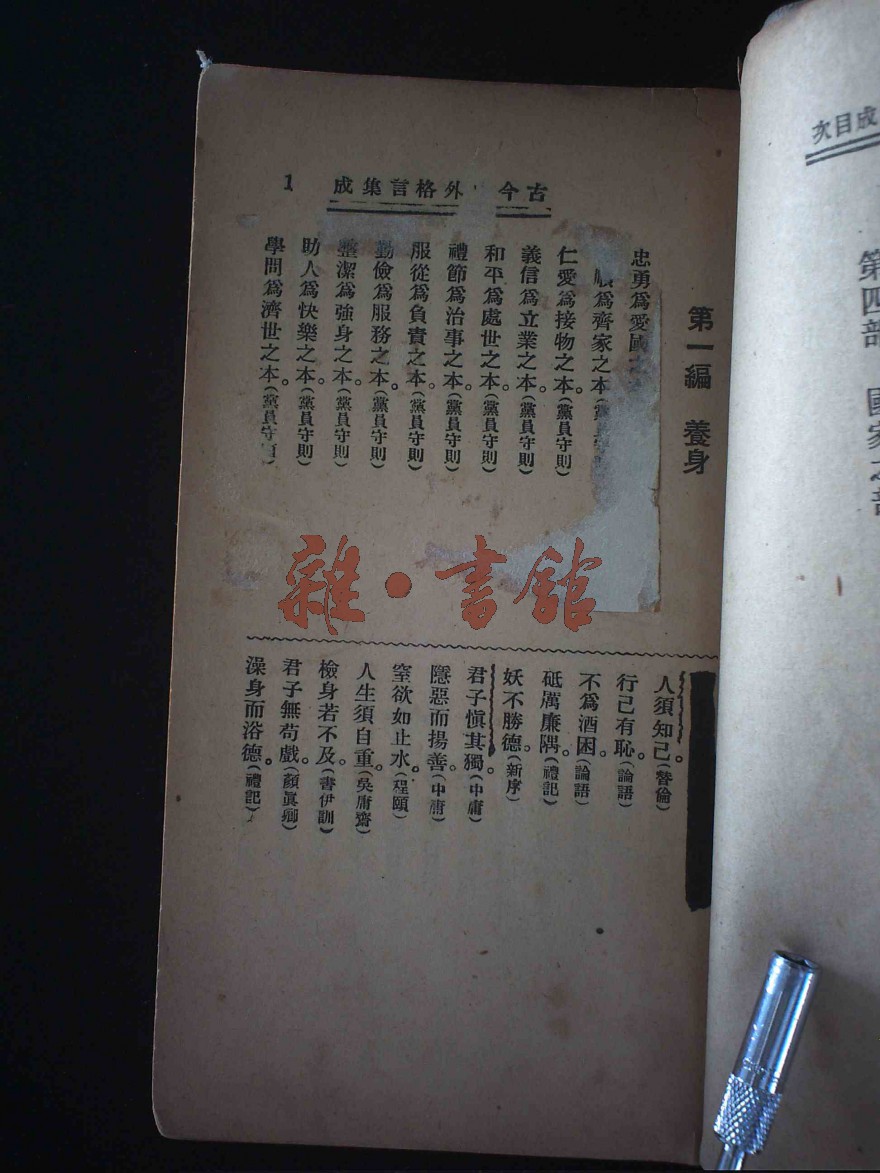 古今 外格言集成 1
第一編 養身
忠勇為愛國
為齊家之本
仁愛為接物之本。(黨員守則)
義信為立業之本。(黨員守則)
和平為處世之本。(黨員守則)
禮節為治事之本。(黨員守則)
服從為負責之本。(黨員守則)
勤儉為服務之本。(黨員守則)
整潔為強身之本。(黨員守則)
助人為快樂之本。(黨員守則)
學問為濟世之本。(黨員守則)
人須知己。(替倫)
行己有恥。(論語)
不為酒困。(論語)
砥厲廉隅。(禮記)
妖不勝德。(新序)
君子慎其獨。(中庸)
隱惡而揚善。(中庸)
窒欲如止水。(程頤)
人生須自重。(吳庸齋)
檢身若不及。(書伊訓)
君子無苟戲。(顏眞卿)
澡身而浴德。(禮記)
成目次
第四部 國家之部
雜·書館